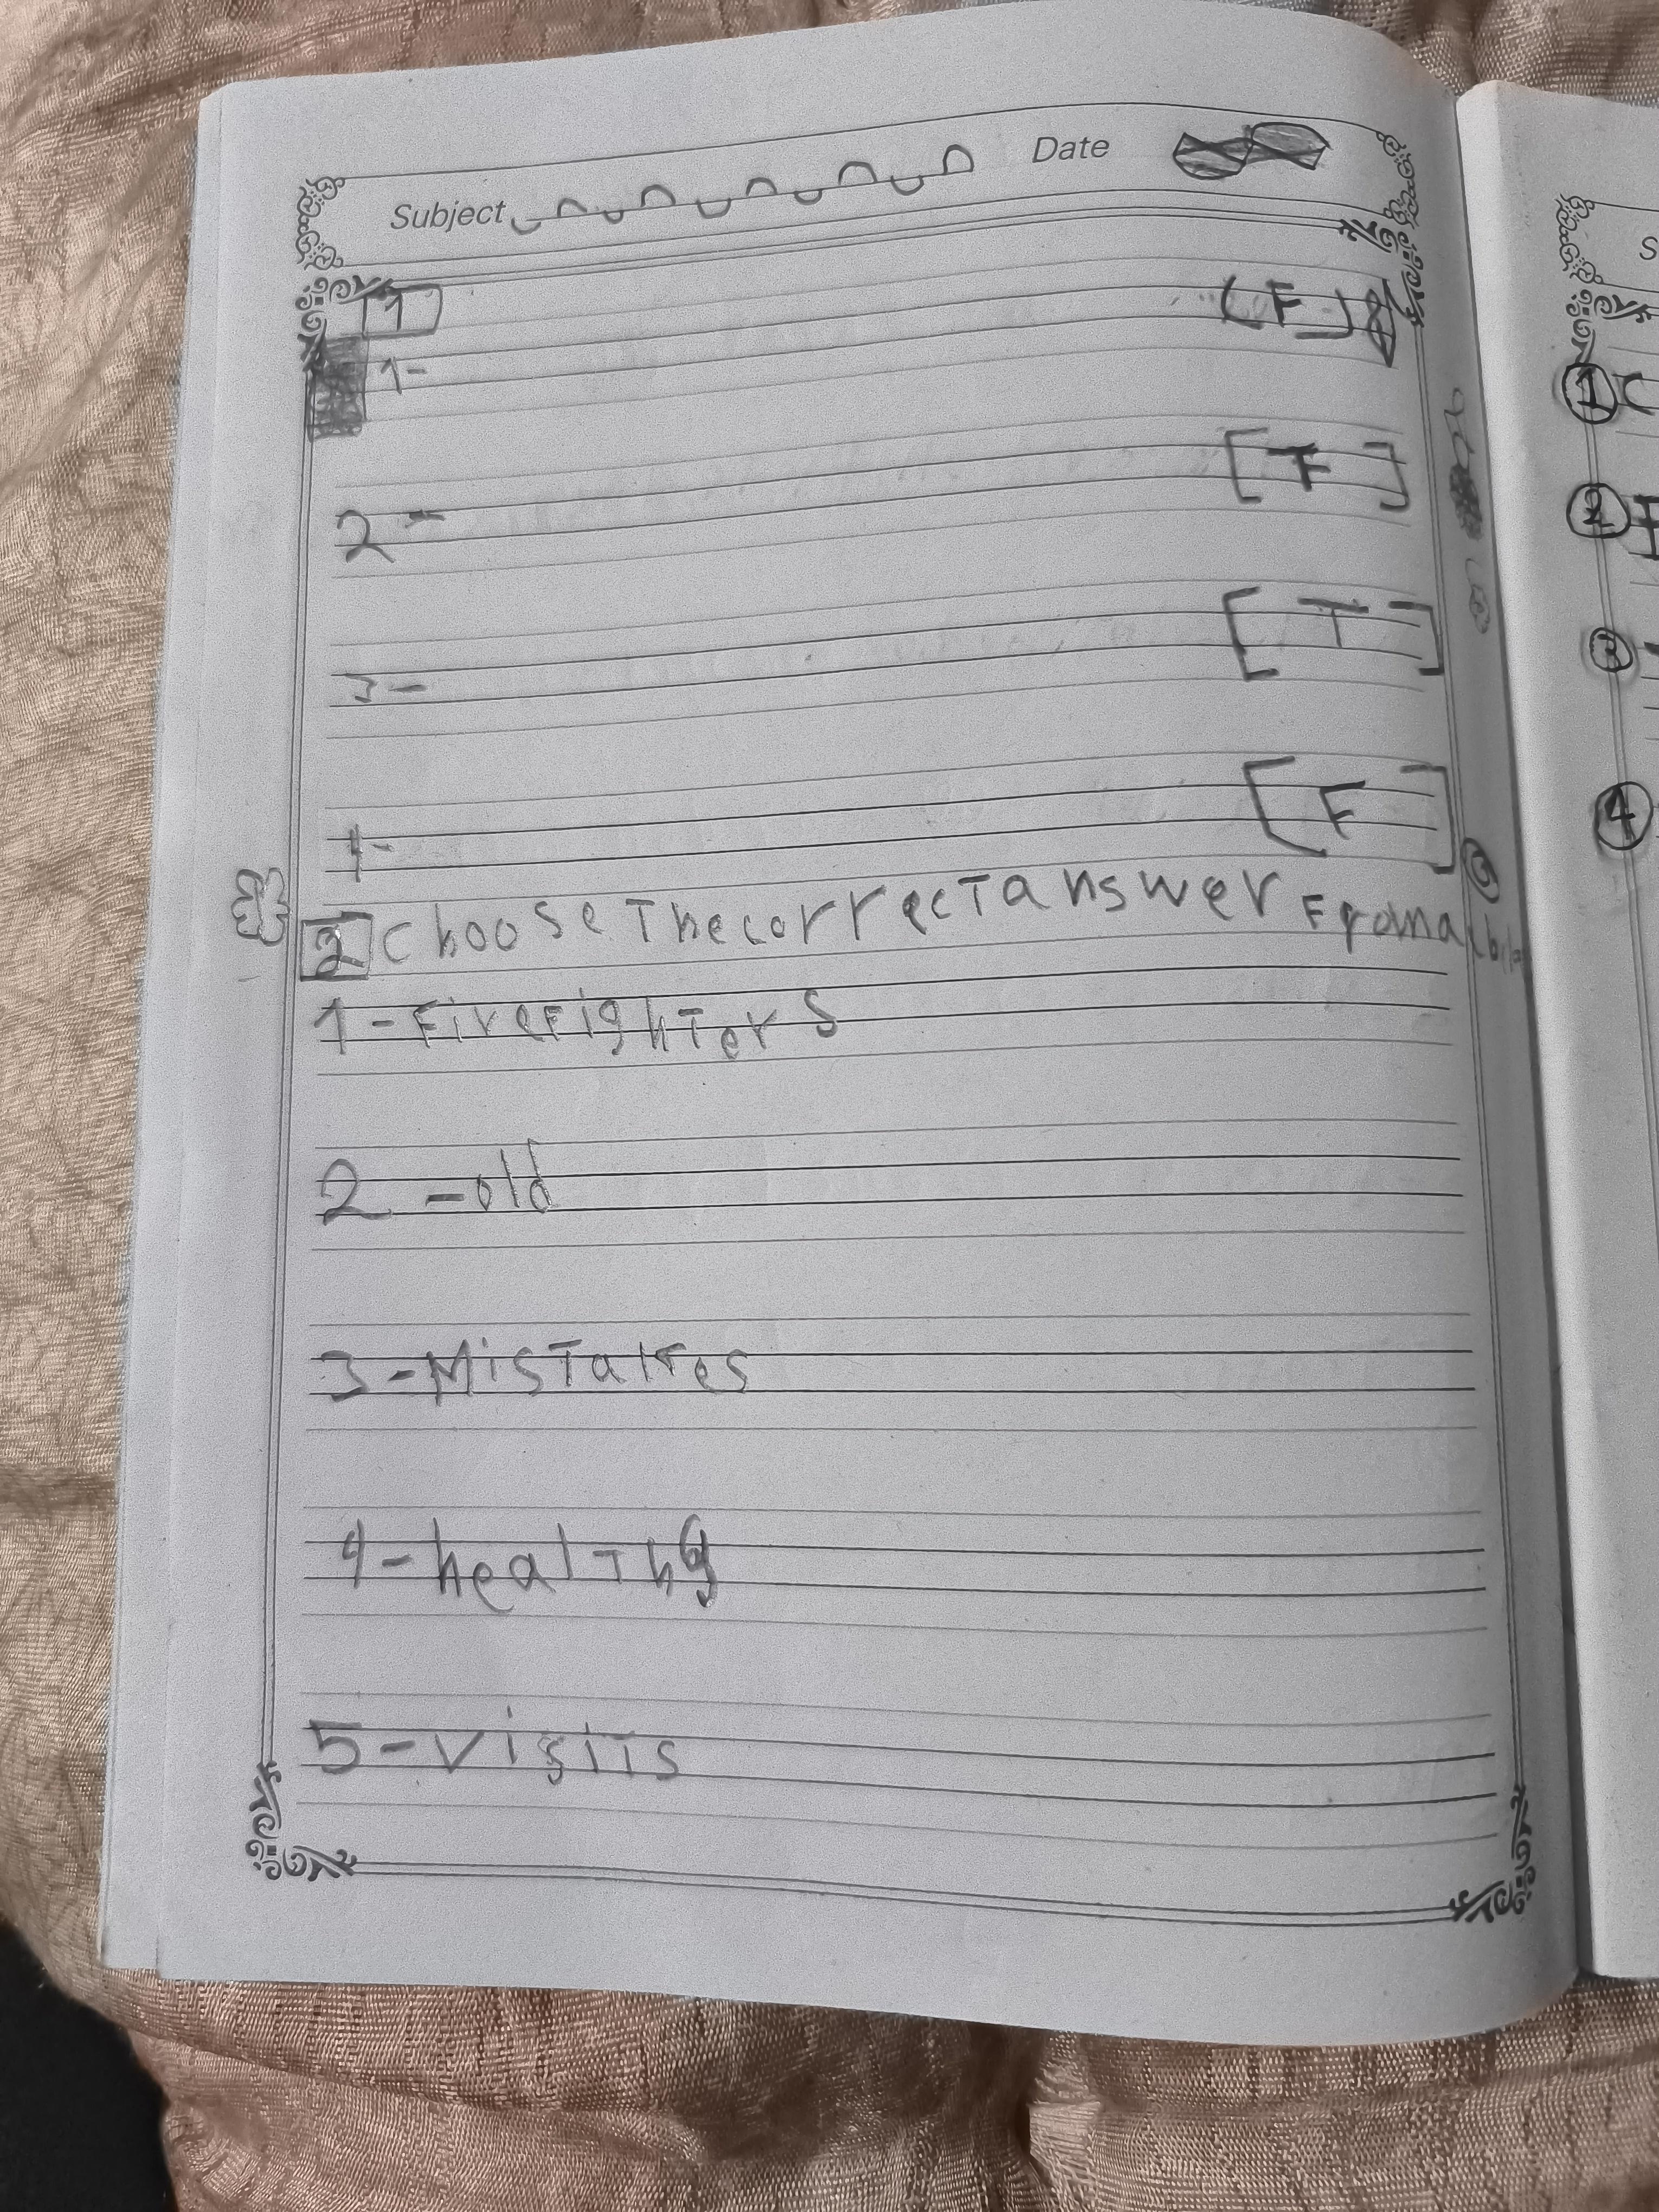 Subject Date
1 (F)
1-
2 - [F]
3 - [T]
4- [F]
2 Choose The correcT answer From a
1 - FireFighTerS
2 - old
3 - MisTakes
4 - healThy
5 - visiTs
1
2
3
4